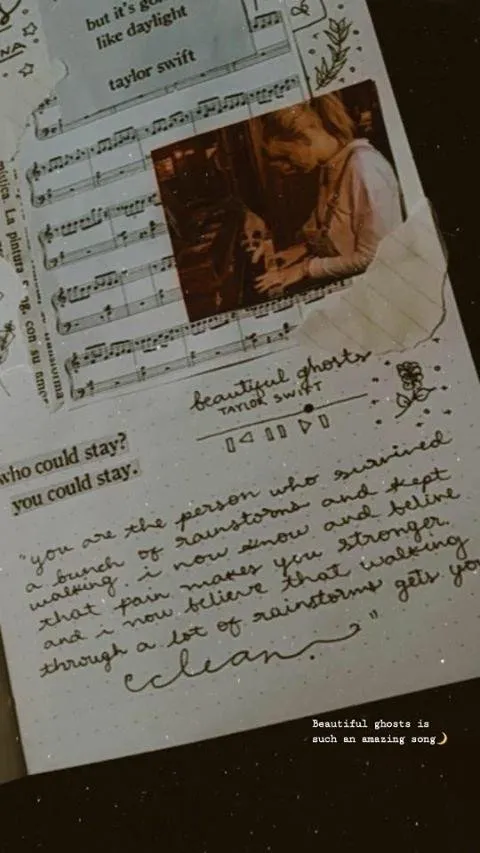 but it's go
like daylight
taylor swift
NA
mística. La pintura
con su
beautiful ghosts
TAYLOR SWIFT
who could stay?
you could stay.
"you are the person who survived
a bunch of rainstorms and kept
walking. i now know and beline
that pain makes you stronger.
and i now believe that walking
through a lot of rainstorms gets you
clean."
Beautiful ghosts is
such an amazing song🌙